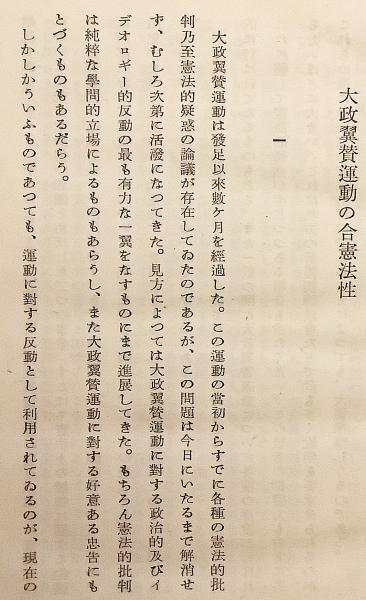 大政翼賛運動の合憲法性
一
大政翼賛運動は發足以來數ケ月を經過した。この運動の當初からすでに各種の憲法的批
判乃至憲法的疑惑の論議が存在してゐたのであるが、この問題は今日にいたるまで解消せ
ず、むしろ次第に活潑になつてきた。見方によつては大政翼賛運動に對する政治的及びイ
デオロギー的反動の最も有力な一翼をなすものにまで進展してきた。もちろん憲法的批判
は純粹な學問的立場によるものもあらうし、また大政翼賛運動に對する好意ある忠告にも
とづくものもあるだらう。
しかしかういふものであつても、運動に對する反動として利用されてゐるのが、現在の